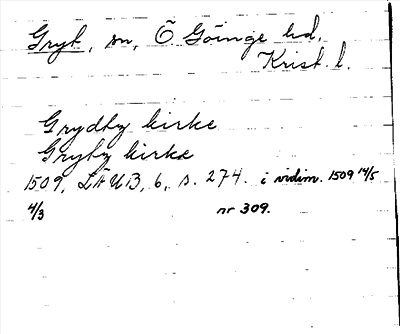 Gryt, sn, Ö. Göinge hd,
Krist. l.
Grydby kirke
Gryby kirke
1509, LÄUB, 6, s. 274. i vidim. 1509 14/5
4/3 nr 309.